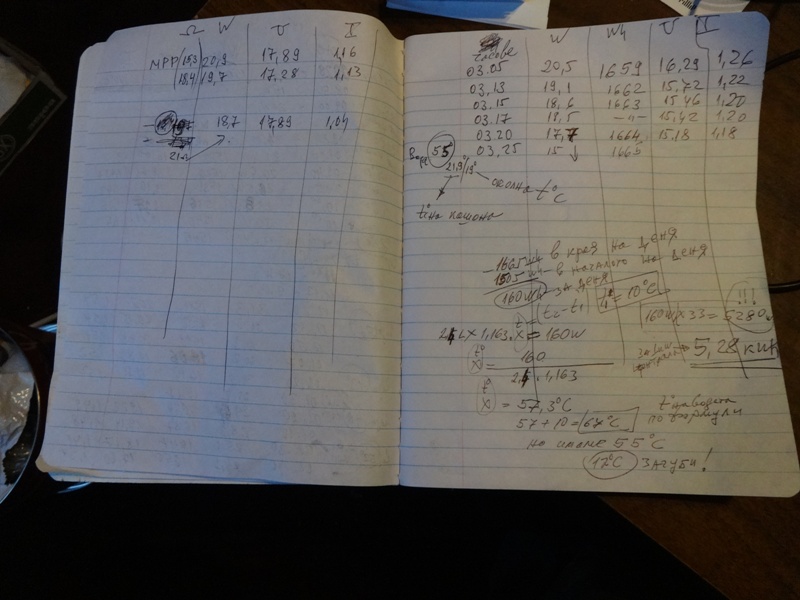 Ω W U I
MPP 15,3 20,9 17,89 1,16
18,4 19,7 17,28 1,13
18,7 17,89 1,04
часове W Wч U I
03.05 20,5 1659 16,29 1,26
03,13 19,1 1662 15,72 1,22
03,15 18,6 1663 15,46 1,20
03.17 18,5 -11- 15,42 1,20
03.20 17,7 1664 15,18 1,18
55° 03,25 15 ↓ 1665
21,9/19° околна t°C
t° на кашона
1665 Wч в края на деня
1505 Wч в началото на деня
160Wч за деня
t = t2-t1
t° = 10°C
160W x 33 = 5280W !!
x 1,163. x = 160W
5,28 кик
x = 160
1,163
x = 57,3°C
57+10= 67°C
t° на водата
по формули
но имаме 55°C
17°C загуби!